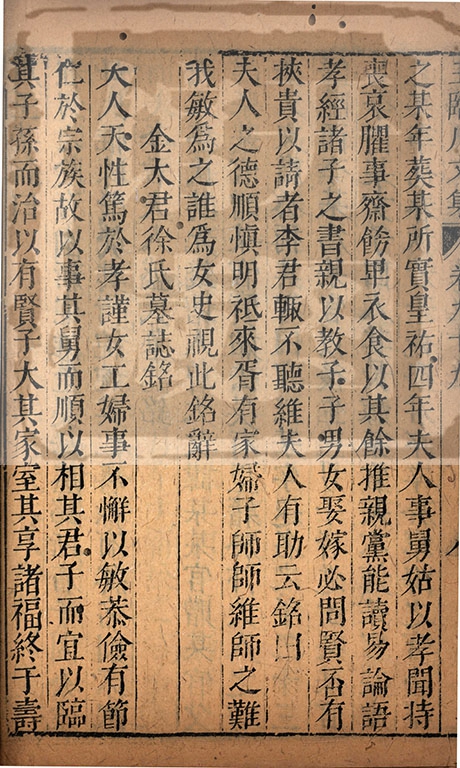 王臨川文集 卷九十九 八
之某年葬某所實皇祐四年夫人事舅姑以孝聞持
喪哀臞事齋飭卑衣食以其餘推親黨能讀易論語
孝經諸子之書親以教子子男女娶嫁必問賢否有
挾貴以請者李君輒不聽維夫人有助云銘曰
夫人之德順慎明祇來胥有家婦子師師維師之難
我敏為之誰為女史視此銘辭
金太君徐氏墓誌銘
夫人天性篤於孝謹女工婦事不懈以敏恭儉有節
仁於宗族故以事其舅而順以相其君子而宜以臨
其子孫而治以有賢子大其家室其享諸福終于壽